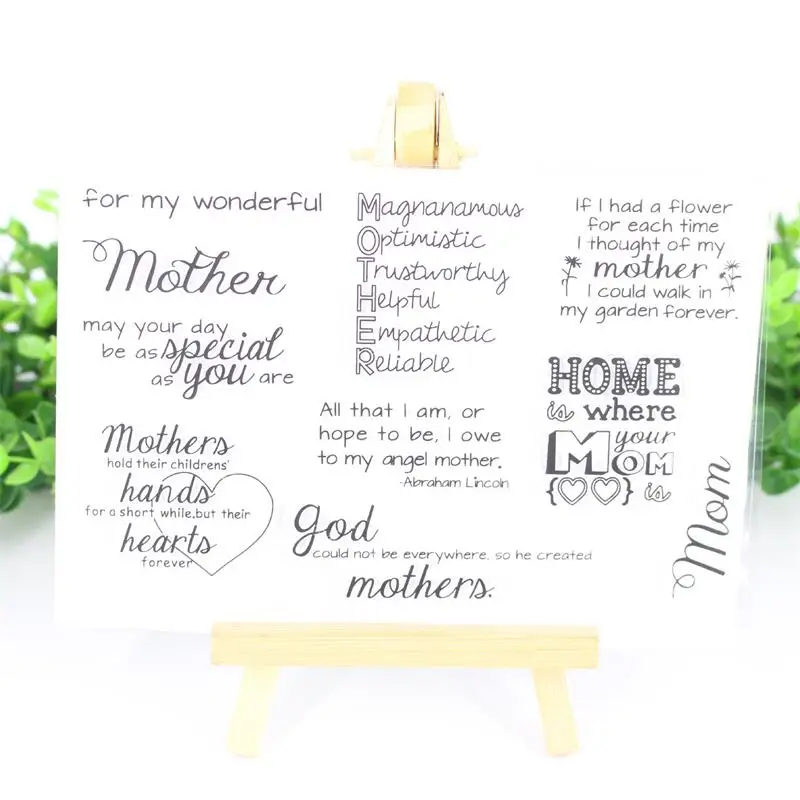 for my wonderful
Mother
may your day
be as special
as you are
Mothers
hold their childrens'
hands
for a short while,but their
hearts
forever
Magnanamous
Optimistic
Trustworthy
Helpful
Empathetic
Reliable
All that I am, or
hope to be, I owe
to my angel mother.
-Abraham Lincoln
god
could not be everywhere, so he created
mothers.
If I had a flower
for each time
I thought of my
mother
I could walk in
my garden forever.
HOME
is where
your
MOM
is
Mom